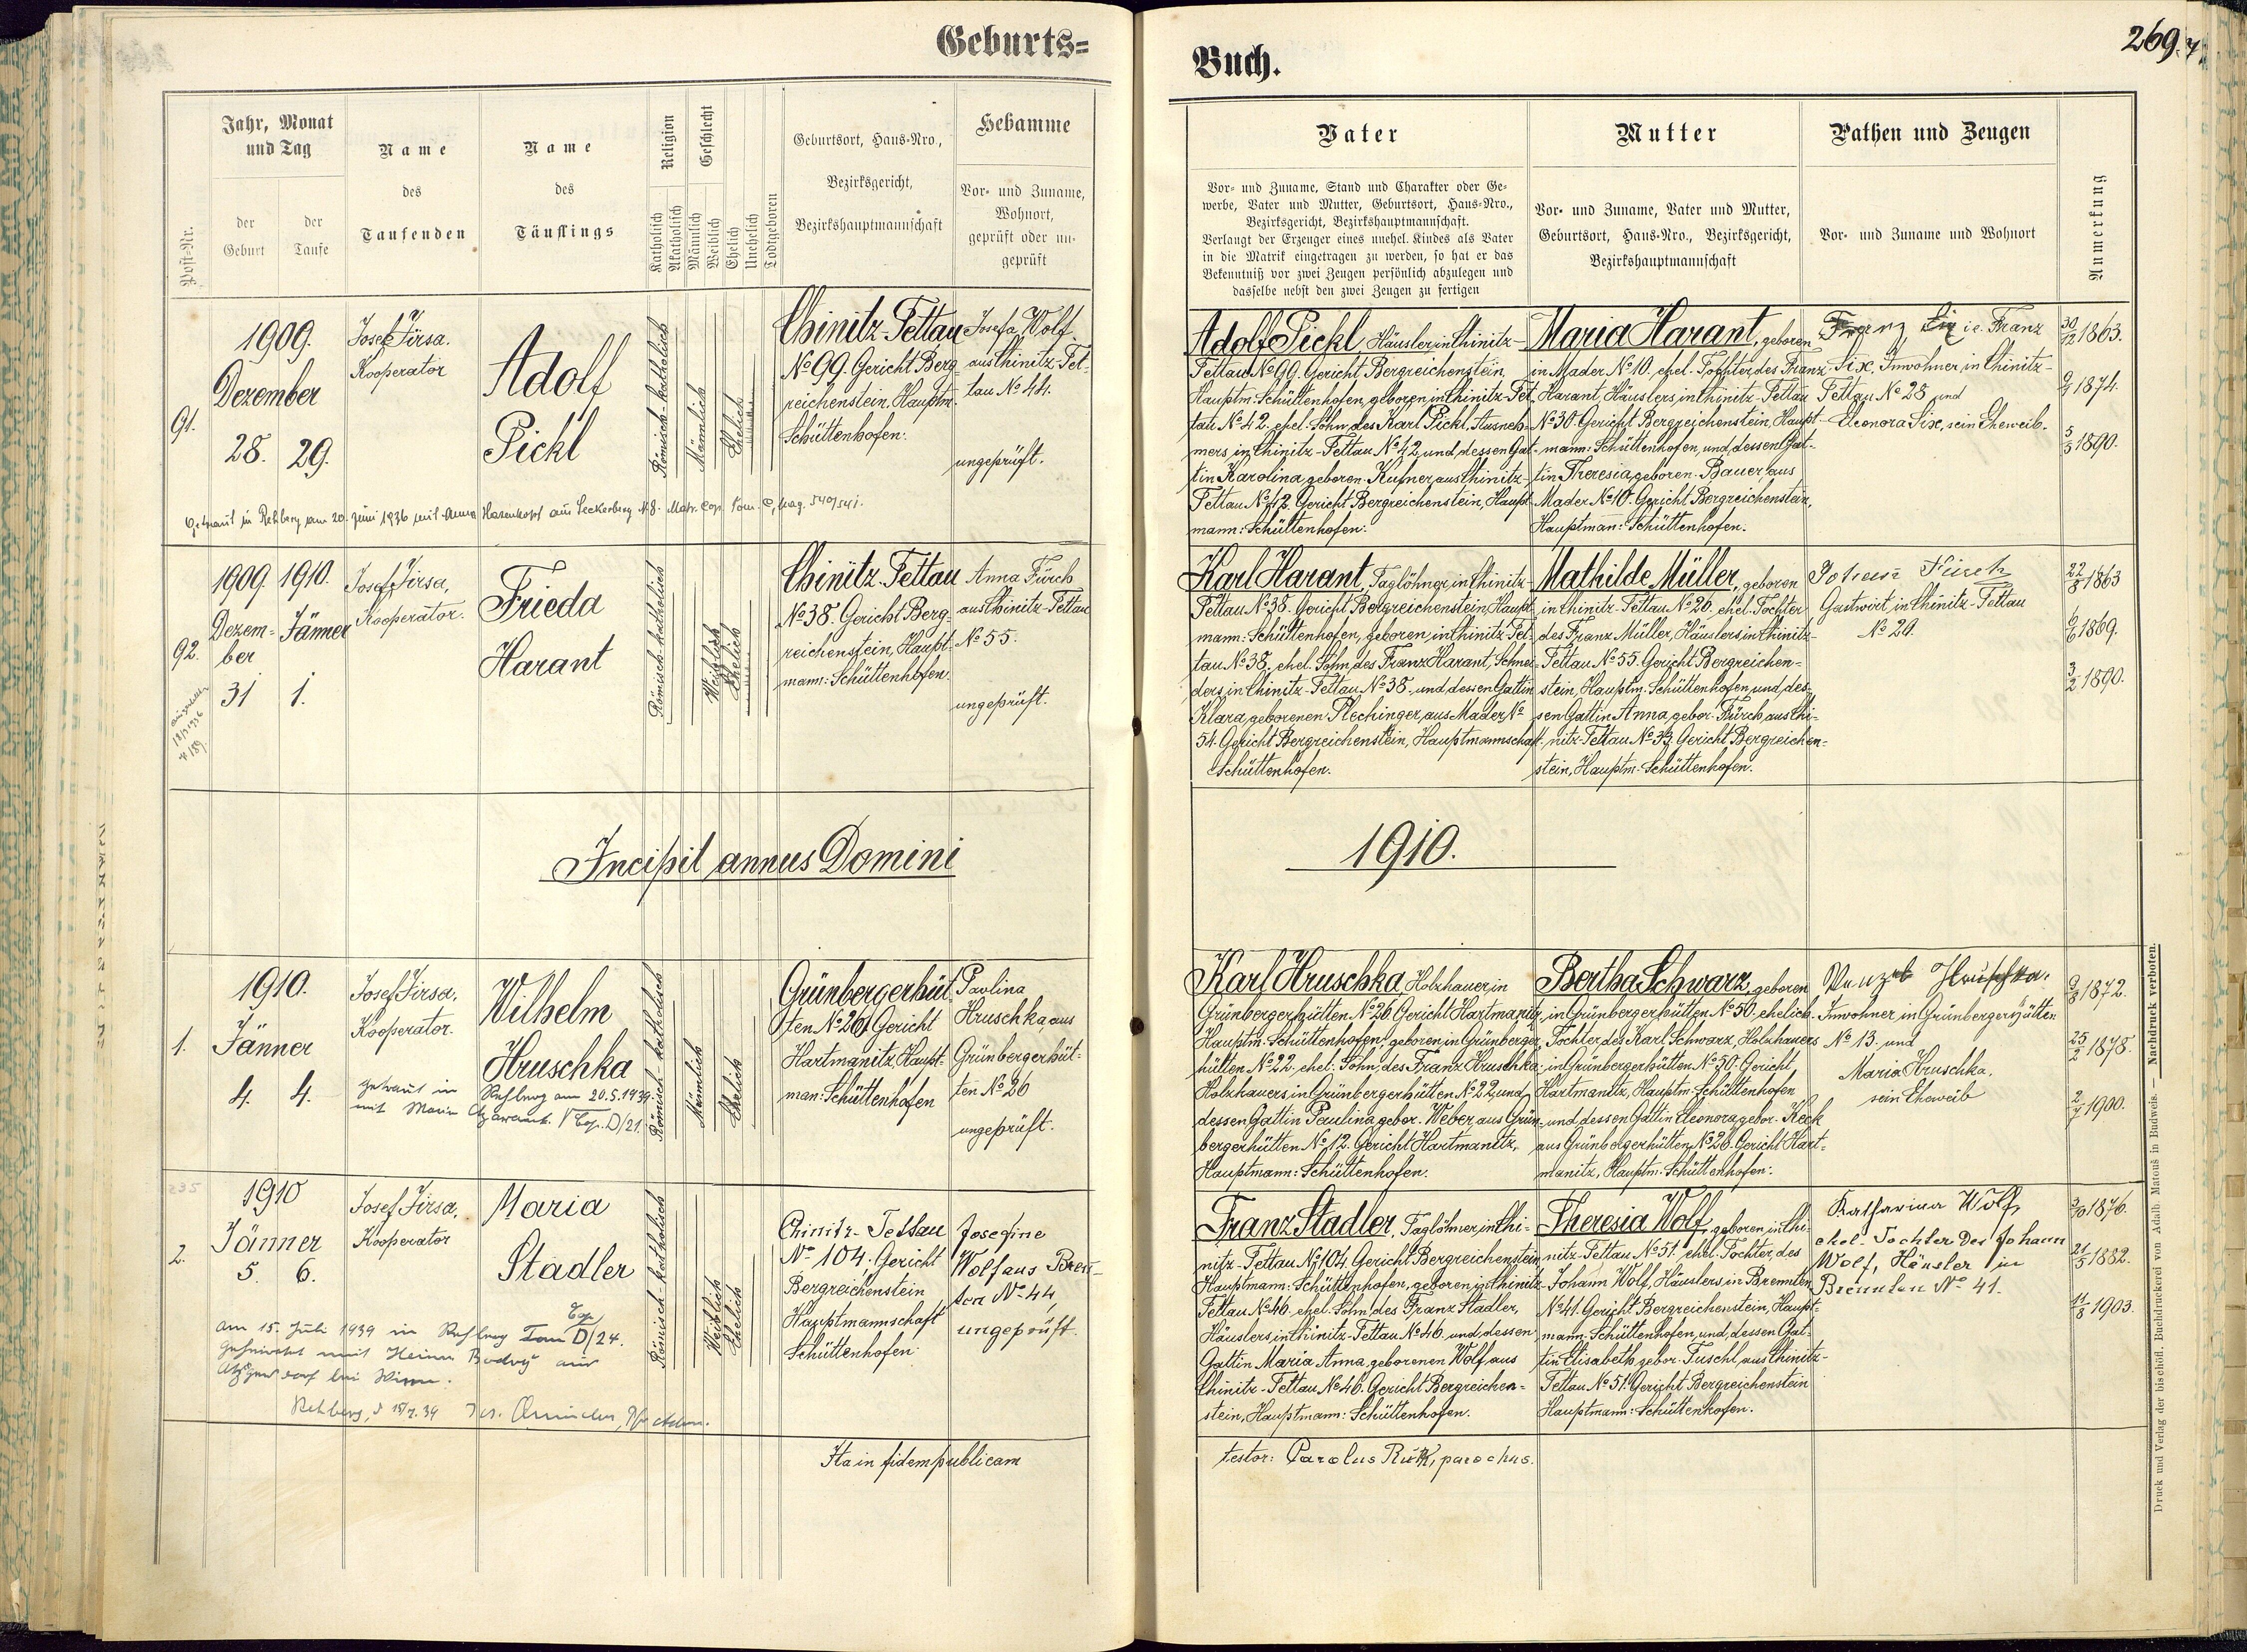 Geburts=
Jahr, Monat
und Tag
der
Geburt
der
Taufe
Post-Nr.
Name
des
Taufenden
Name
des
Täuflings
Religion
Katholisch
Akatholisch
Geschlecht
Männlich
Weiblich
Ehelich
Unehelich
Todtgeboren
Geburtsort, Haus-Nro.,
Bezirksgericht,
Bezirkshauptmannschaft
Hebamme
Vor- und Zuname,
Wohnort,
geprüft oder un-
geprüft
91.
1909.
Dezember
28. 29.
Josef Jirsa.
Kooperator
Adolf
Pickl
Römisch-katholisch
Männlich
Ehelich
Chinitz-Tettau
No 99. Gericht Berg-
reichenstein, Hauptm.
Schüttenhofen.
Josefa Wolf
aus Chinitz-Tet-
tau No 44.
ungeprüft.
Getraut in Rehberg am 20. Juni 1936 mit Anna Hasenkopf aus Seckerberg N. 8. Matr. Cop. Tom. C, pag. 540/541.
92.
1909. 1910.
Dezem- Jänner
ber
31 1.
Josef Jirsa,
Kooperator.
Frieda
Harant
Römisch-katholisch
Weiblich
Ehelich
Chinitz-Tettau
No 38. Gericht Berg-
reichenstein, Haupt-
mann: Schüttenhofen.
Anna Fürch
aus Chinitz-Tettau
No 55.
ungeprüft.
Incipit annus Domini
1.
1910.
Jänner
4. 4.
Josef Jirsa,
Kooperator.
Wilhelm
Hruschka
getraut in Rehberg am 20.5.1939
mit Maria
Römisch-katholisch
Männlich
Ehelich
Grünbergerhüt-
ten No 26, Gericht
Hartmanitz, Haupt-
man: Schüttenhofen
Paulina
Hruschka, aus
Grünbergerhüt-
ten No 26
ungeprüft.
2.
1910
Jänner
5. 6.
Josef Jirsa,
Kooperator
Maria
Stadler
Römisch-katholisch
Weiblich
Ehelich
Chinitz-Tettau
No 104, Gericht
Bergreichenstein
Hauptmannschaft
Schüttenhofen
Josefine
Wolf aus Bren-
ten No 44,
ungeprüft.
am 15. Juli 1939 in Rehberg Tom D/24.
Rehberg, d 15/7. 39
Ita in fidem publicam
Buch.
269.
Vater
Vor- und Zuname, Stand und Charakter oder Ge-
werbe, Vater und Mutter, Geburtsort, Haus-Nro.,
Bezirksgericht, Bezirkshauptmannschaft.
Verlangt der Erzeuger eines unehel. Kindes als Vater
in die Matrik eingetragen zu werden, so hat er das
Bekenntniß vor zwei Zeugen persönlich abzulegen und
dasselbe nebst den zwei Zeugen zu fertigen
Mutter
Vor- und Zuname, Vater und Mutter,
Geburtsort, Haus-Nro., Bezirksgericht,
Bezirkshauptmannschaft
Pathen und Zeugen
Vor- und Zuname und Wohnort
Anmerkung
Adolf Pickl Häusler in Chinitz-
Tettau No 99. Gericht Bergreichenstein,
Hauptm. Schüttenhofen, geboren in Chinitz-Tet-
tau No 42. ehel. Sohn des Karl Pickl, Ausneh-
mers in Chinitz-Tettau No 42 und dessen Gat-
tin Karolina geboren. Kufner aus Chinitz-
Tettau No 42. Gericht Bergreichenstein, Haupt-
mann: Schüttenhofen.
Maria Harant, geboren
in Mader No 10. ehel. Tochter des Franz
Harant, Häuslers, in Chinitz-Tettau
No 30. Gericht Bergreichenstein, Haupt-
mann: Schüttenhofen, und dessen Gat-
tin Theresia, geboren. Bauer, aus
Mader No 10. Gericht Bergreichenstein,
Hauptman: Schüttenhofen.
Franz Six i.e. Franz
Six, Inwohner in Chinitz-
Tettau No 28 und
Eleonora Six, sein Eheweib.
30/12 1863.
9/9 1874.
5/5 1890.
Karl Harant, Taglöhner, in Chinitz-
Tettau No 38. Gericht Bergreichenstein Haupt-
mann: Schüttenhofen, geboren in Chinitz-Tet-
tau No 38. ehel. Sohn des Franz Harant, Schnei-
ders, in Chinitz-Tettau No 38. und dessen Gattin
Klara, geborenen Plechinger, aus Mader No
54. Gericht Bergreichenstein, Hauptmannschaft
Schüttenhofen.
Mathilde Müller, geboren
in Chinitz-Tettau No 26. ehel. Tochter
des Franz Müller, Häuslers, in Chinitz-
Tettau No 55. Gericht Bergreichen-
stein, Hauptm. Schüttenhofen, und des-
sen Gattin Anna, gebor. Fürch, aus Chi-
nitz-Tettau No 33. Gericht Bergreichen-
stein, Hauptm. Schüttenhofen.
Johann Fürch
Gastwirt, in Chinitz-Tettau
No 29.
22/8 1863
6/6 1869.
3/2 1890.
1910.
Karl Hruschka, Holzhauer in
Grünbergerhütten No 26 Gericht Hartmanitz,
Hauptm. Schüttenhofen, geboren in Grünberger-
hütten No 22. ehel. Sohn, des Franz Hruschka,
Holzhauers, in Grünbergerhütten No 22, und
dessen Gattin Paulina, gebor. Weber, aus Grün-
bergerhütten No 12. Gericht Hartmanitz,
Hauptmann: Schüttenhofen.
Bertha Schwarz, geboren
in Grünbergerhütten No 50. ehelich.
Tochter, des Karl Schwarz, Holzhauers
in Grünbergerhütten No 50. Gericht
Hartmanitz, Hauptm. Schüttenhofen
und dessen Gattin Eleonora, gebor. Keck
aus Grünbergerhütten No 26. Gericht Hart-
manitz, Hauptm. Schüttenhofen.
Hruschka.
Inwohner in Grünbergerhütten
No 13. und
Maria Hruschka,
sein Eheweib
9/8 1872.
25/2 1878.
2/7 1900.
Franz Stadler, Taglöhner, in Chi-
nitz-Tettau No 104. Gericht Bergreichenstein
Hauptmann: Schüttenhofen, geboren in Chinitz-
Tettau No 46. ehel. Sohn des Franz Stadler,
Häuslers, in Chinitz-Tettau No 46. und dessen
Gattin Maria Anna, geborenen Wolf, aus
Chinitz-Tettau No 46. Gericht Bergreichen-
stein, Hauptmann: Schüttenhofen.
Theresia Wolf, geboren in Chi-
nitz-Tettau No 51. ehel. Tochter, des
Johann Wolf, Häuslers, in Brennten
No 41. Gericht Bergreichenstein, Haupt-
mann: Schüttenhofen, und dessen Gat-
tin Elisabeth, gebor. Tuschl, aus Chinitz-
Tettau No 51. Gericht Bergreichenstein
Hauptmann: Schüttenhofen.
Katharina Wolf,
ehel. Tochter des Johann
Wolf, Häusler in
Brennten No 41.
3/10 1876.
21/5 1882.
11/8 1903.
testor: Carolus Růžk, parochus.
Druck und Verlag der bischöfl. Buchdruckerei von Adalb. Matouš in Budweis. — Nachdruck verboten.